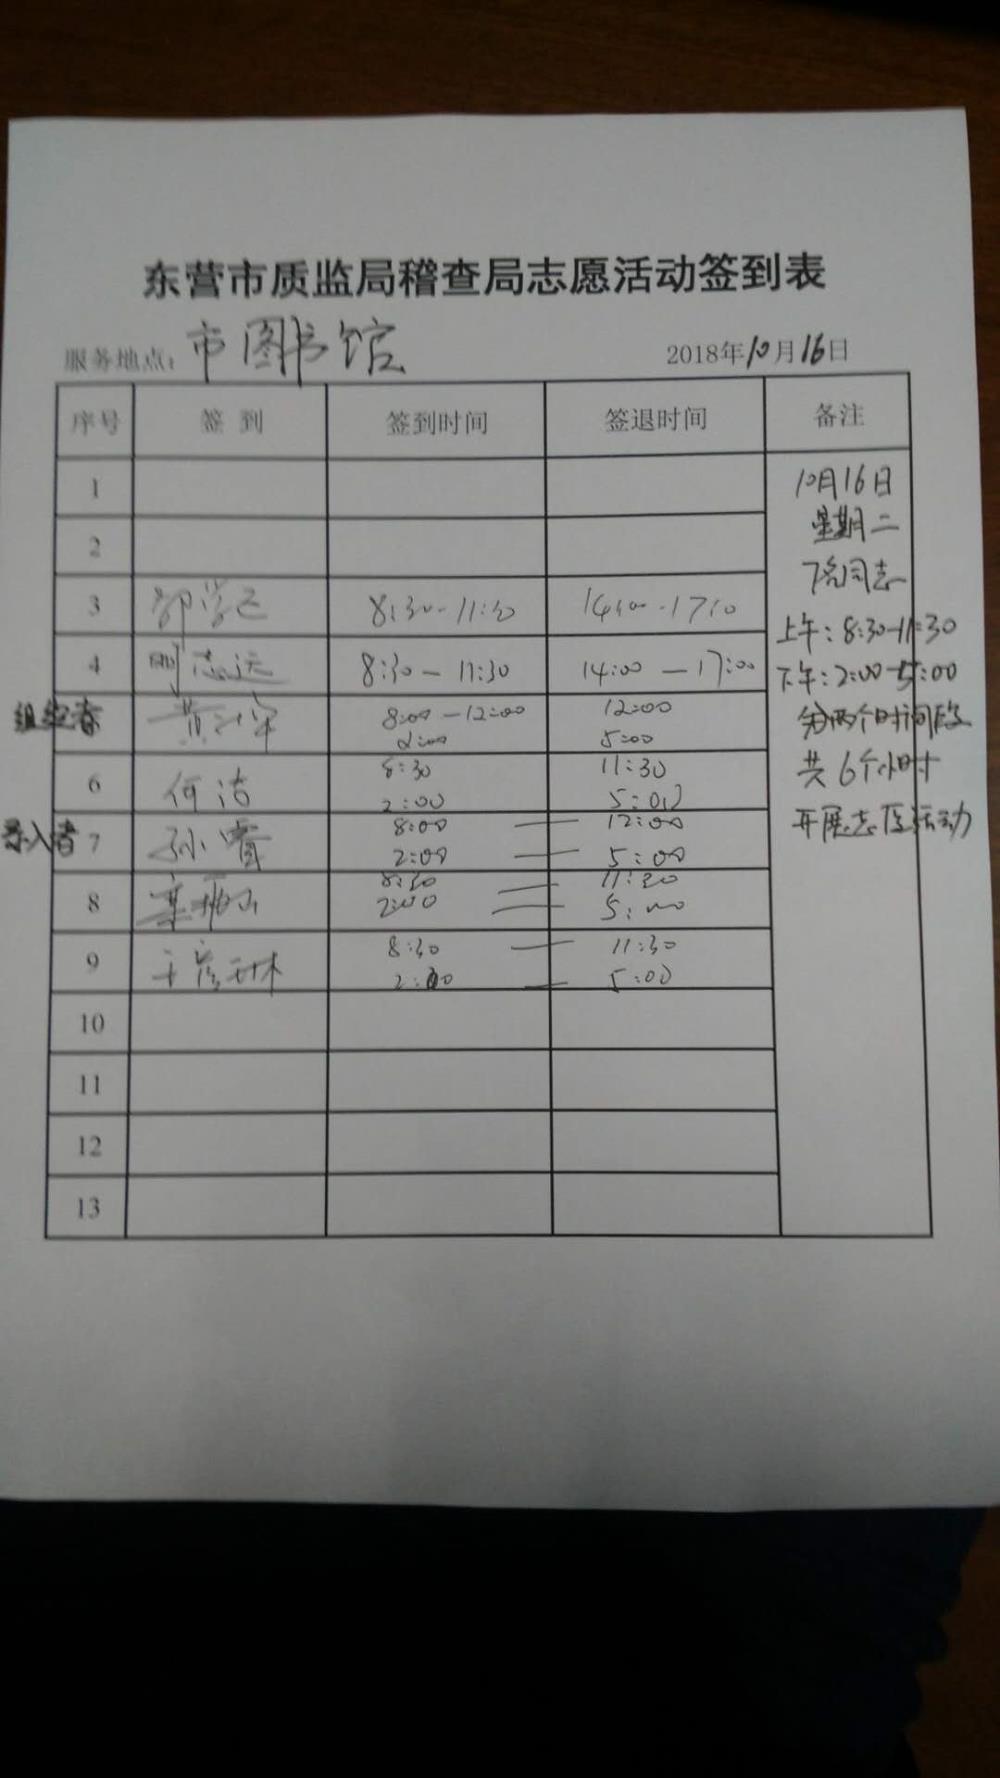 东营市质监局稽查局志愿活动签到表
服务地点：市图书馆 2018年10月16日
序号 签到 签到时间 签退时间 备注
1
2
3 8:30-11:30 14:00-17:0
4 志远 8:30-11:30 14:00-17:00
组织者 黄 8:00-12:00 12:00
2:00 5:00
6 何洁 8:30 11:30
2:00 5:00
录入者 7 孙 8:00 — 12:00
2:00 — 5:00
8 8:30 — 11:30
2:00 — 5:00
9 琳 8:30 — 11:30
2:00 — 5:00
10
11
12
13
10月16日
星期二
同志
上午：8:30-11:30
下午：2:00-5:00
分两个时间段
共6个小时
开展志愿活动